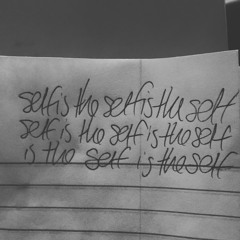 self is the self is the self
self is the self is the self
is the self is the self